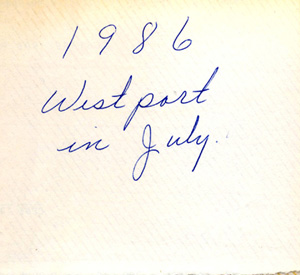 1986
Westport
in July.